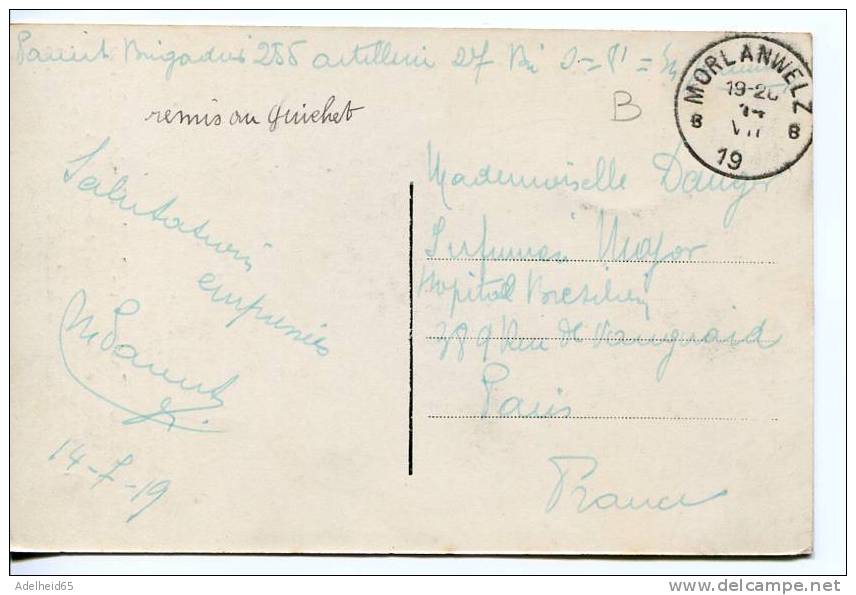 Brigadier 255 artillerie 27
remis au Guichet
B
MORLANWELZ
19-20
14
VII
B B
19
Salutations
empressées
14-7-19
Mademoiselle
Infirmière Major
Hopital Bresilien
389 Rue de Vaugirard
Paris
France
Adelheid65
delcampe.net